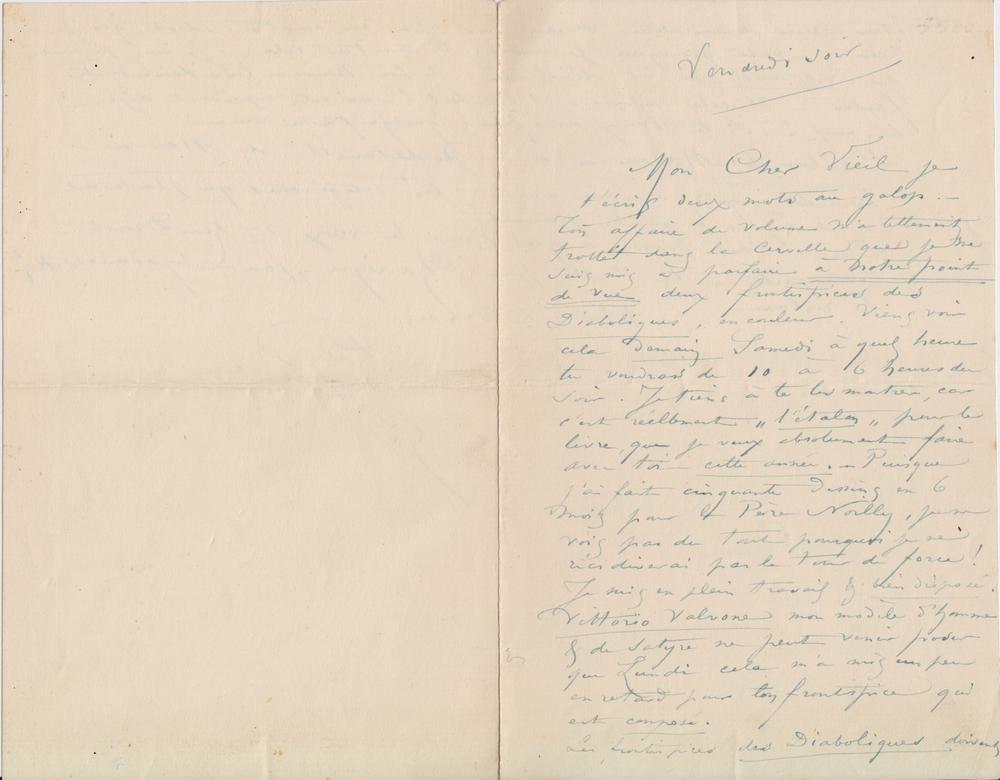 3500
Vendredi soir
Mon Cher Vieil je
t'écris deux mots au galop. –
Ton affaire de volume m'a tellement
trotté dans la cervelle que je me
suis mis à parfaire à notre point
de vue deux frontispices des
Diaboliques, en couleur. Viens voir
cela demain Samedi à quelq heure
tu voudras de 10 à 6 heures du
soir. Je tiens à te les montrer, car
c'est réellement „ l'étalon „ pour le
livre, que je veux absolument faire
avec toi cette année. – Puisque
j'ai fait cinquante Dessins en 6
mois pour le Père Noilly, je ne
vois pas du tout pourquoi je ne
récidiverai pas le tour de force !
Je suis en plein travail & bien disposé.
Vittorio Valvone mon modèle d'homme
& de Satyre ne peut venir poser
que Lundi cela m'a mis un peu
en retard pour ton frontispice qui
est composé.
Les frontispices des Diaboliques doivent